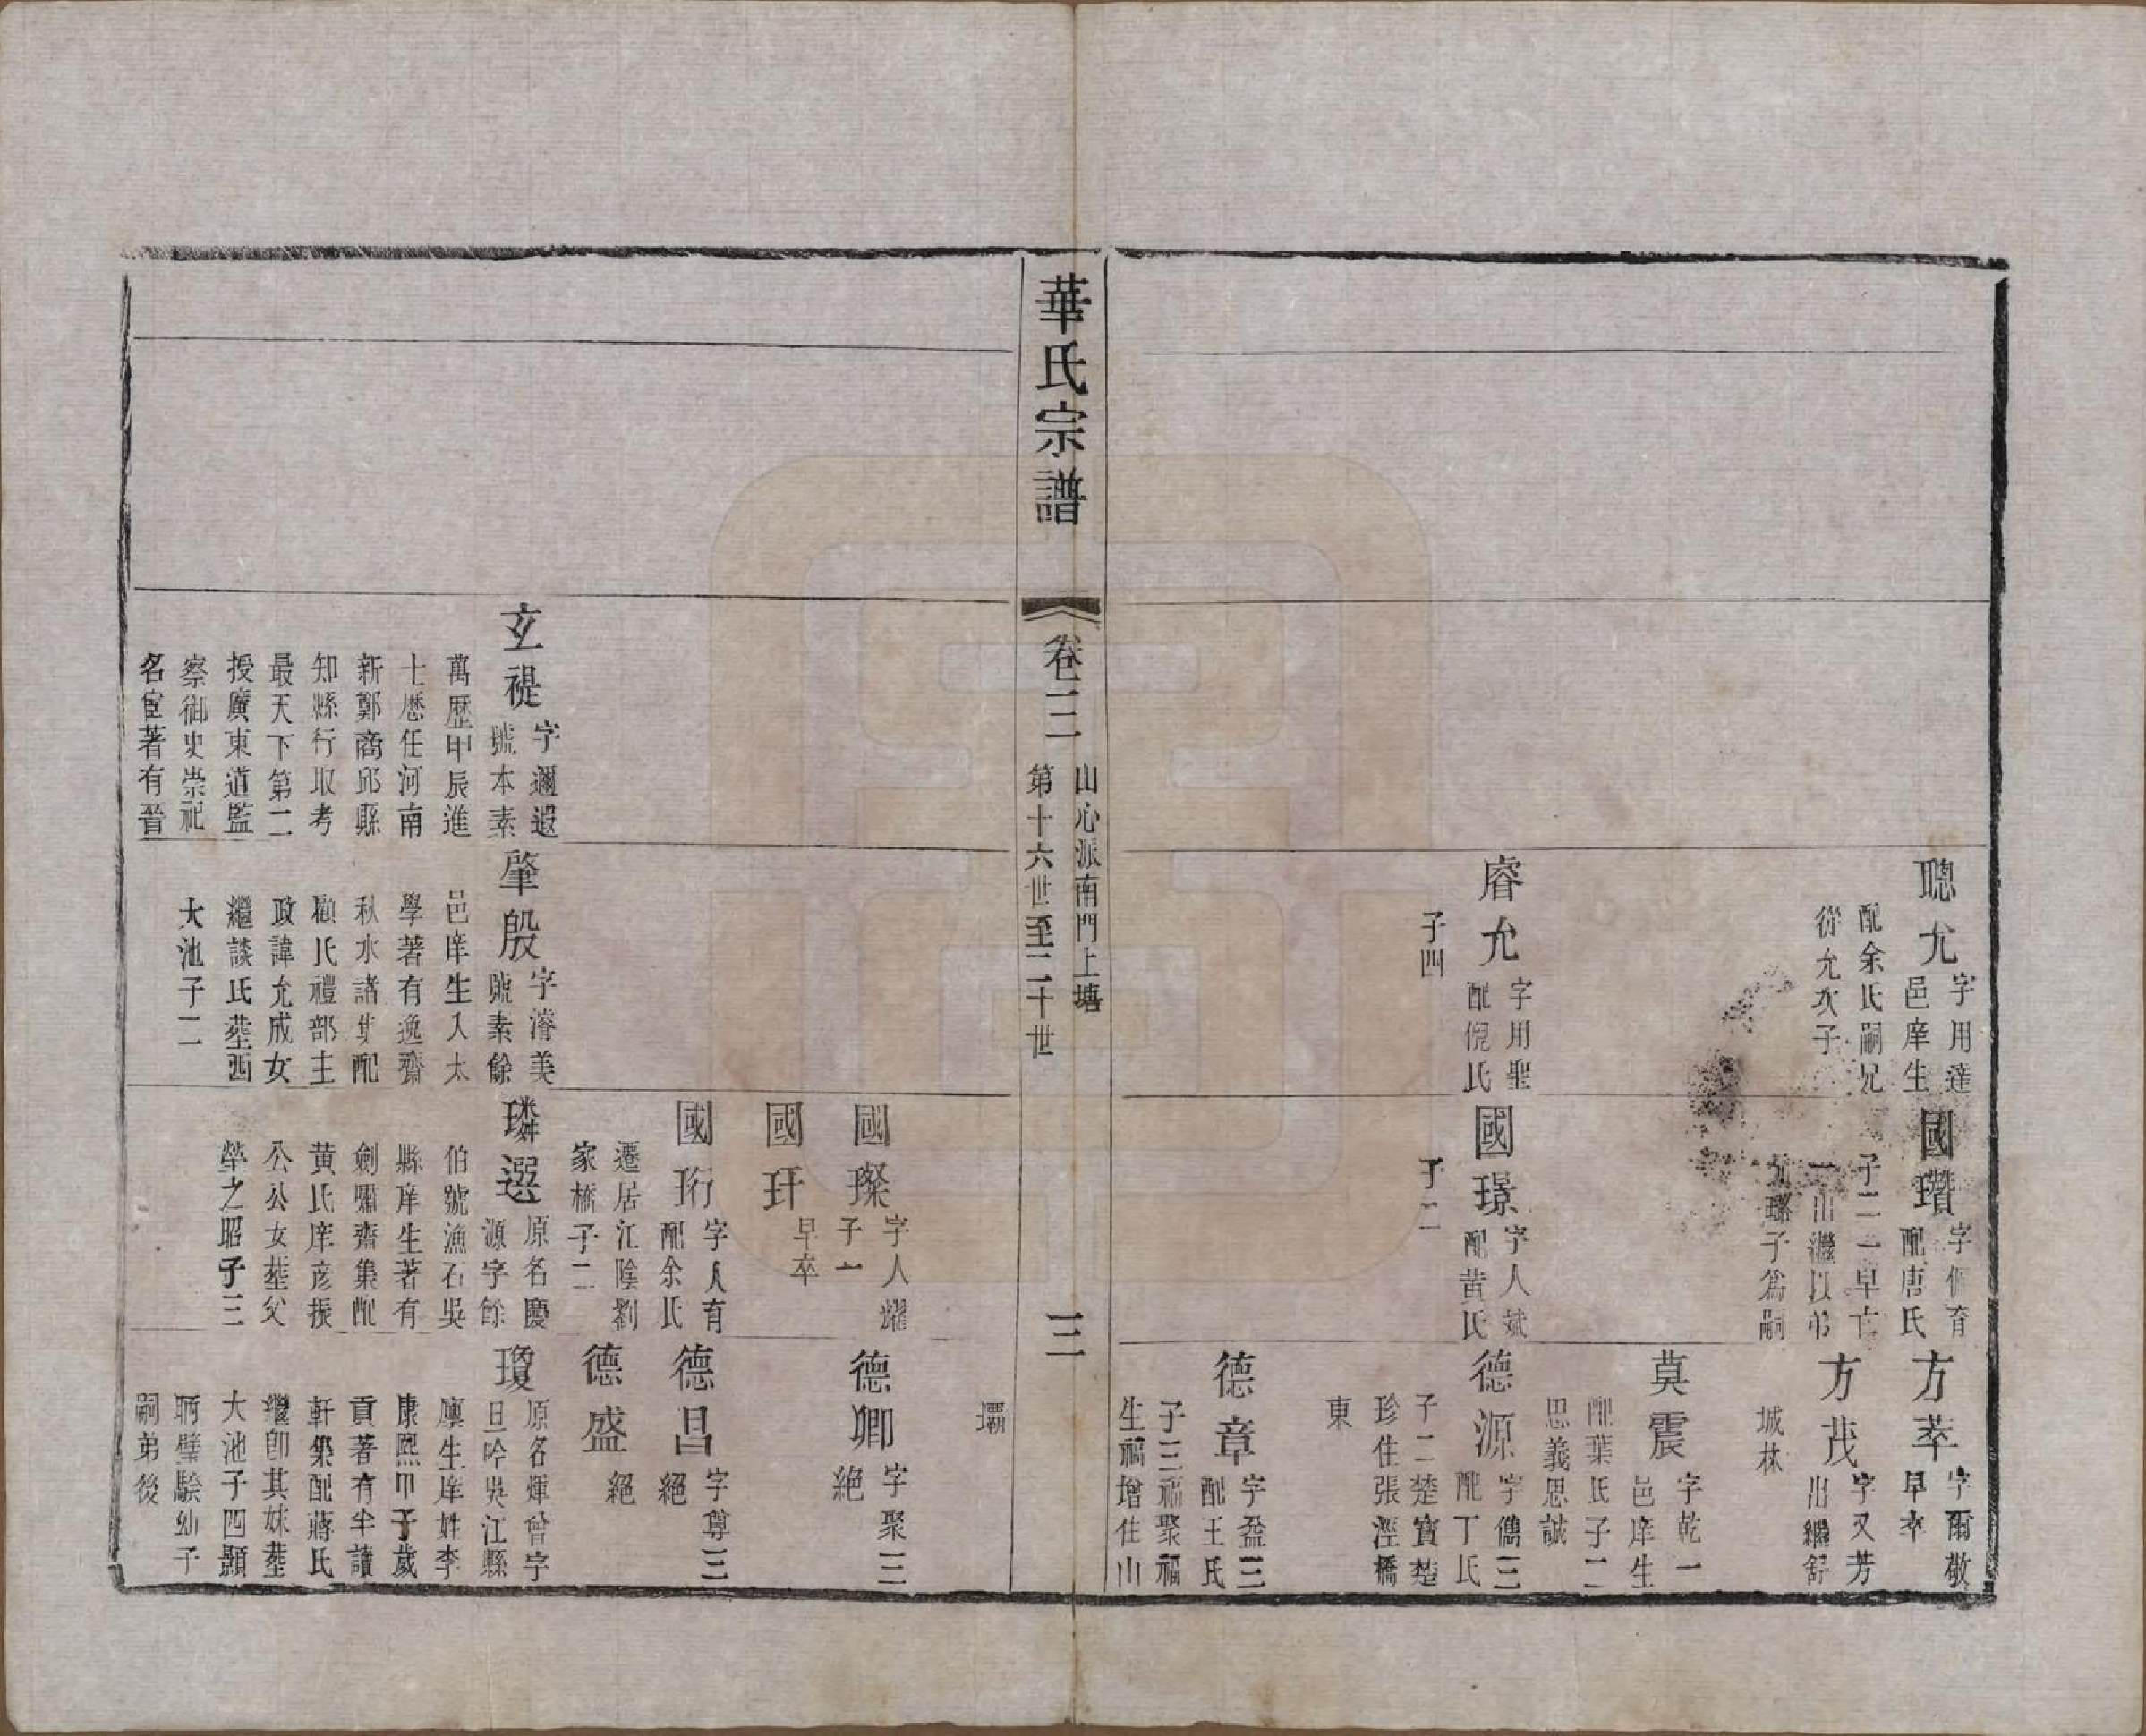 聰允
字用達
邑庠生
配余氏嗣兄
從允次子
睿允
字用聖
配倪氏
子四
國瓚
字
育
配唐氏
子二一早亡
一出繼以
子為嗣
國璟
字人斌
配黃氏
子二
方萃
字爾敬
早卒
方茂
字又芳
出繼舒
城林
莫震
字乾一
邑庠生
配葉氏子二
思義思誠
德源
字儁三
配丁氏
子二楚寶楚
珍住張涇橋
東
德章
字盈三
配王氏
子三福聚福
生福增住山
華氏宗譜
卷三二
山心派南門上塘
第十六世至二十世
三
壩
國璨
字人耀
子一
國玕
早卒
國珩
字人育
配余氏
遷居江陰劉
家橋子二
德卿
字聚三
絕
德昌
字尊三
絕
德盛
絕
玄禔
字邇遐
號本素
萬歷甲辰進
士歷任河南
新鄭商邱縣
知縣行取考
最天下第二
授廣東道監
察御史崇祀
名宦著有晉
肇殷
字濬美
號素餘
邑庠生入太
學著有逸齋
秋水諸集配
顧氏禮部主
政諱允成女
繼談氏塟西
大池子二
璘選
原名慶
源字餘
伯號漁石吳
縣庠生著有
劍嘯齋集配
黃氏庠彥振
公公女塟父
塋之昭子三
瓊
原名煇曾字
旦吟吳江縣
廩生庠姓李
康熙甲子歲
貢著有半讀
軒集配蔣氏
繼卽其妹塟
大池子四顯
昞璧騄幼子
嗣弟後